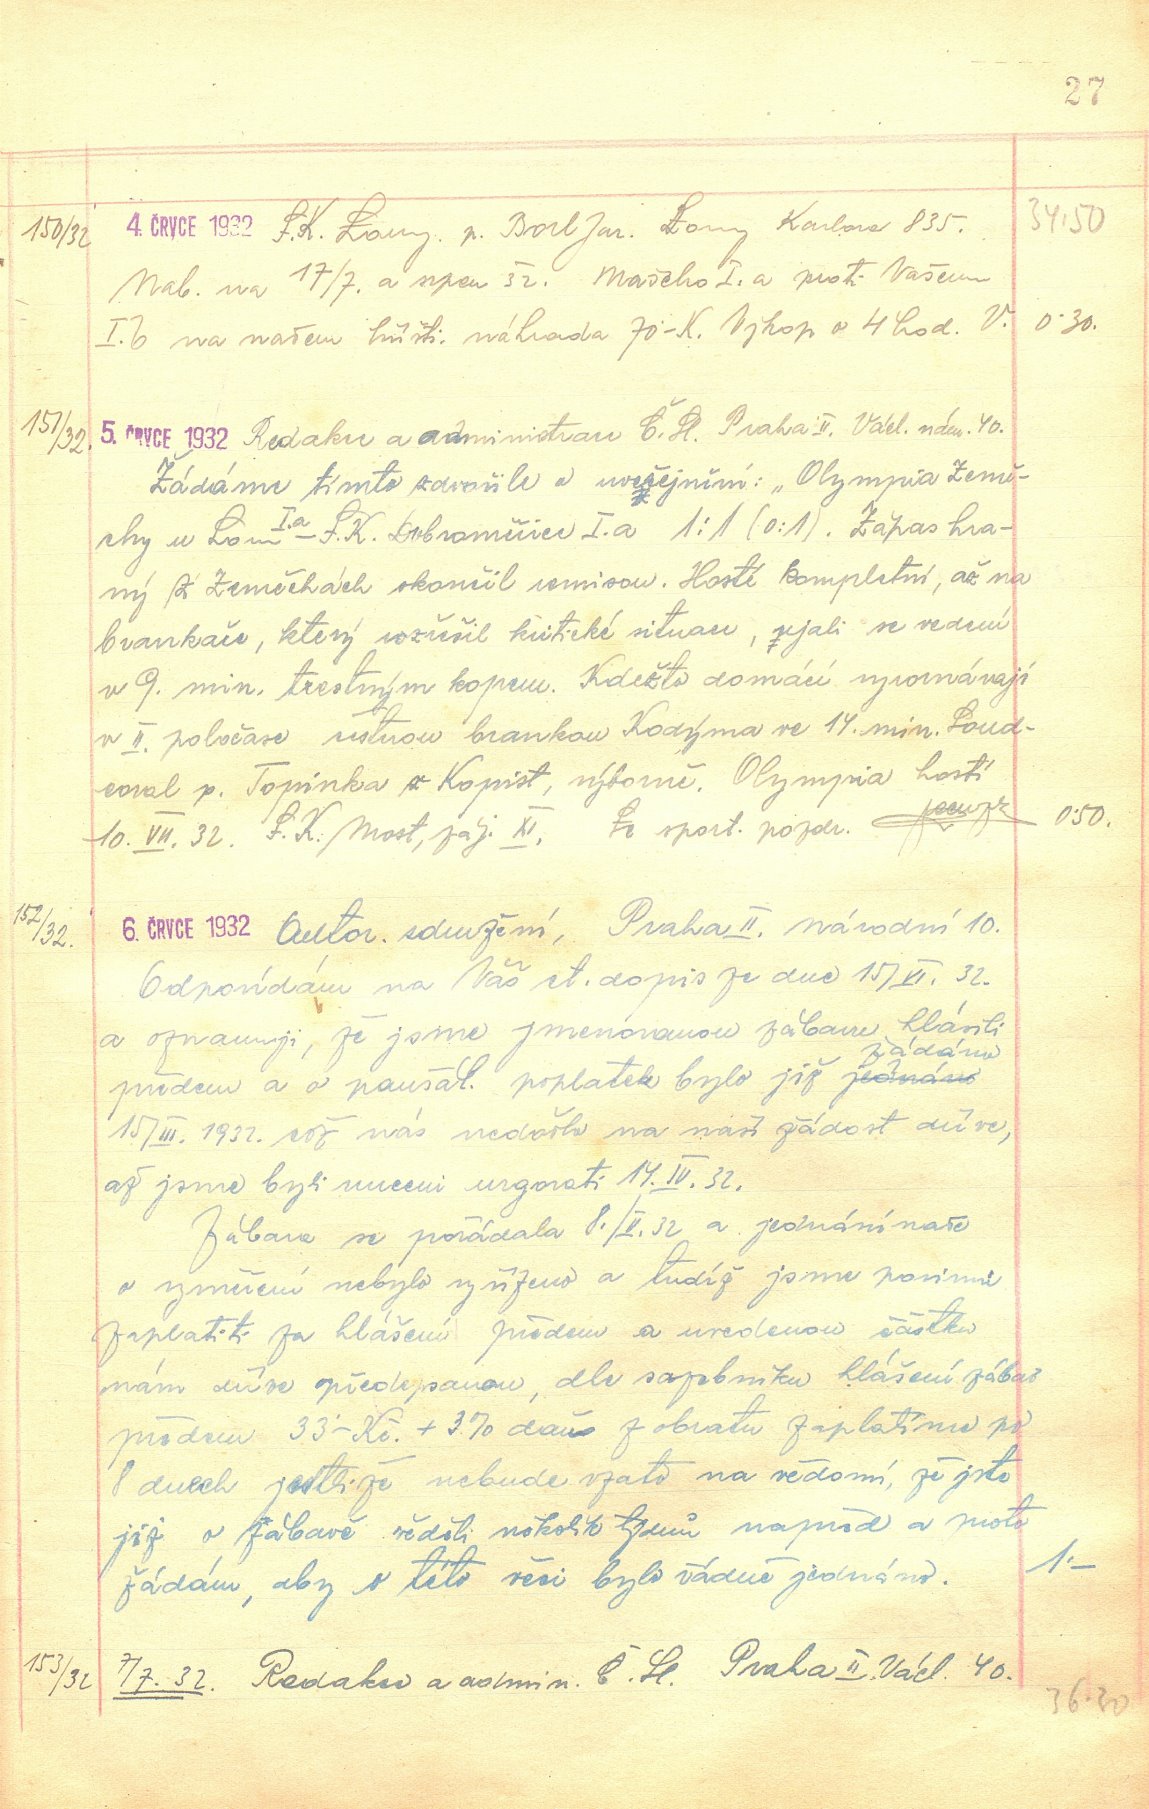 27
150/32 4. ČRVCE 1932 S.K. Louny. p. Borl Jar. Louny Karlova 835. 34·50
Nab. na 17/7. a srpen 32. Mašeho I.a proti Vašemu
I.b na našem hřišti. náhrada 70-K. Výkop o 4 hod. V. 0·30.
151/32. 5. ČRVCE 1932 Redakce a administrace Č.Sl. Praha II. Václ. nám. 40.
Žádáme tímto zdvořile o uveřejnění: „Olympia Země-
chy u Loun I.a – S.K. Dobroměřice I.a 1:1 (0:1). Zápas hra-
ný v Zeměchách skončil remisou. Hosté kompletní, až na
brankáře, který rozřešil kritické situace, ujali se vedení
v 9. min. trestným kopem. Kdežto domácí vyrovnávají
v II. poločase brankou Kodýma ve 14. min. Soud-
coval p. Topinka z Kopist, výborně. Olympia hostí
10. VII. 32. S.K. Most, záj. XI. Se sport. pozdr. 0·50.
152/32. 6. ČRVCE 1932 Autor. sdružení, Praha II. Národní 10.
Odpovídám na Váš ct. dopis ze dne 15/VI. 32.
a oznamuji, že jsme jmenovanou zábavu hlásili
žádáno
předem a o paušál. poplatek bylo již jednáno
15/III. 1932. což nás nedošlo na naši žádost dříve,
až jsme byli nuceni urgovati 14. IV. 32.
Zábava se pořádala 8./V. 32 a jednání naše
o vyměření nebylo vyřízeno a tudíž jsme povinni
zaplatiti za hlášení předem a uvedenou částku
nám dříve předepsanou, dle sazebníku hlášení zábav
předem 33·- Kč. + 3% daň z obratu zaplatíme po
8 dnech jestliže nebude vzato na vědomí, že jste
již o zábavě věděli několik týdnů napřed a proto
žádám, aby v této věci bylo řádně jednáno. 1·–
153/32 7/7. 32. Redakce a admin. Č. Sl. Praha II. Václ. 40.
36·30